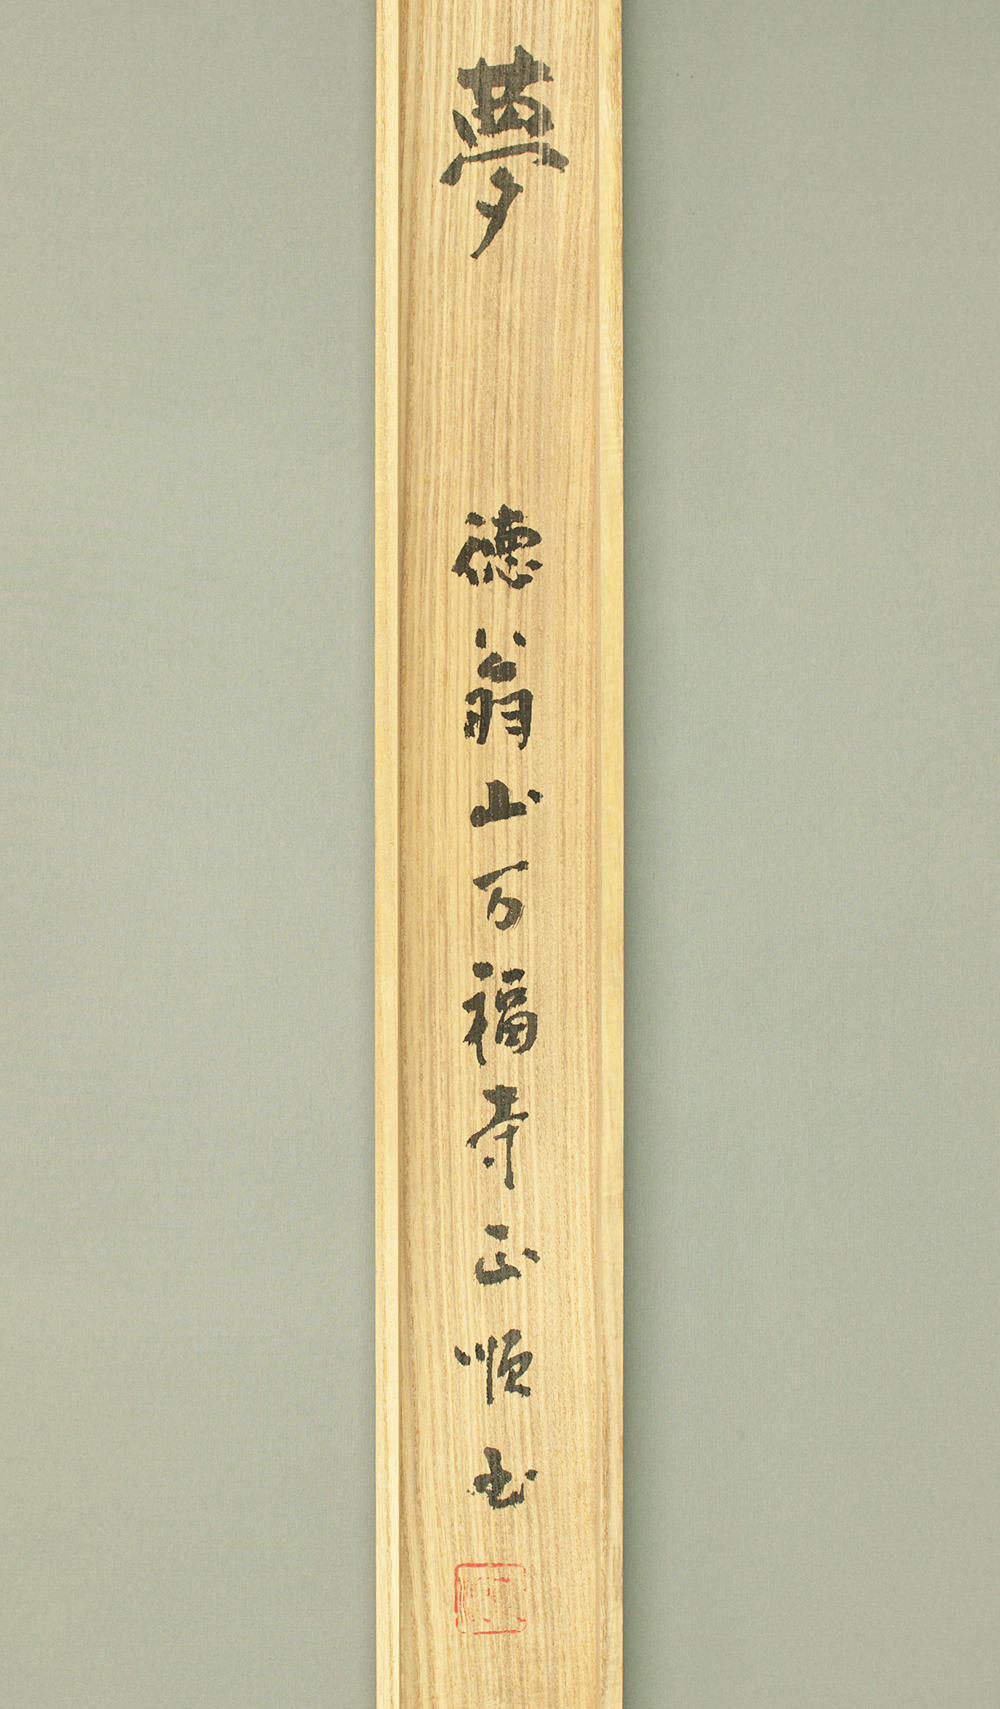 夢 徳翁山万福寺正順書